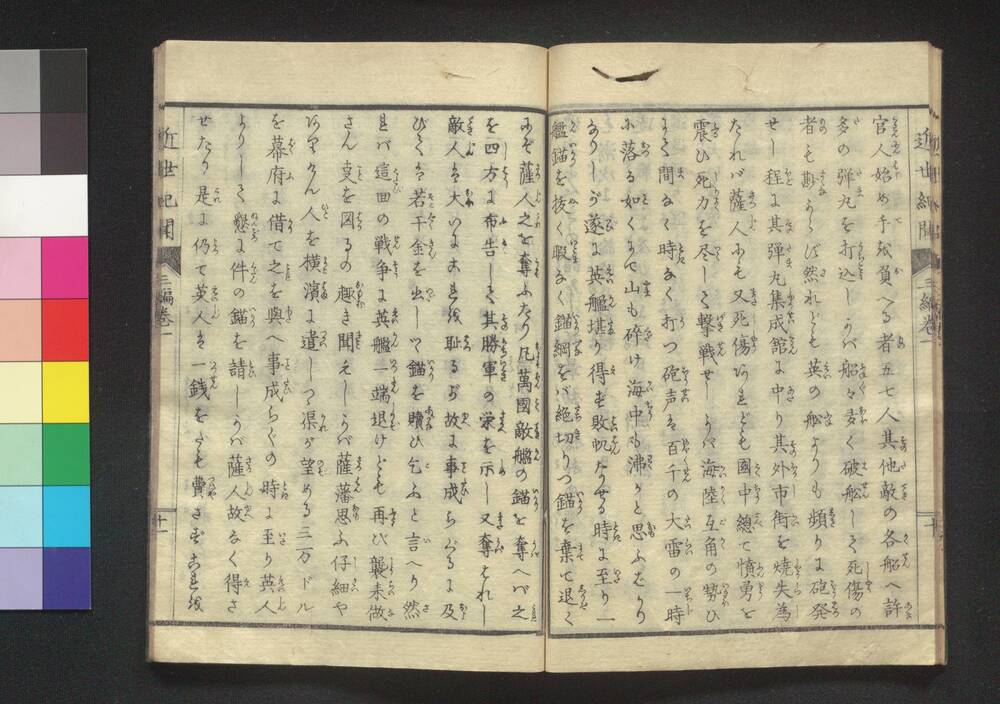 官人始め手を負へる者五七人其他敵の各船へ許
多の弾丸を打込しかバ船々多く破舩して死傷の
者も尠からず然れども英の舩よりも頻りに砲発
せし程に其弾丸集成館に中り其外市街を焼失為
たれバ薩人にも又死傷ありども國中總て憤勇を
震ひ死力を尽して撃戦せしかバ海陸互角の勢ひ
にて間なく時なく打つ砲声ハ百千の大雷の一時
に落る如くにて山も砕け海中も沸かと思ふばかり
なりしが遂に英艦堪り得ず敗帆なせる時に至り一
艦錨を抜く暇なく錨綱をバ絶切りつ錨を棄て退く
にぞ薩人之を奪ふたり凡萬國敵艦の錨を奪へバ之
を四方に布告して其勝軍の栄を示し又奪はれし
敵人ハ大いにこれを恥るが故に事成らぐるに及
びてハ若干金を出して錨を贖ひ乞ふと言へり然
れバ這回の戦争に英艦一端退けども再び襲来做
さん支を図るの趣き聞えしかバ薩藩思ふ仔細や
ありけん人を横濱に遣しつ渠が望める三万ドル
を幕府に借て之を與へ事成らぐの時に至り英人
よりして懇に件の錨を請しかバ薩人故なく得さ
せたり是に仍て英人ハ一銭をだも費さずこれを
近世紀聞
三編巻一
十
近世紀聞
三編巻一
十一